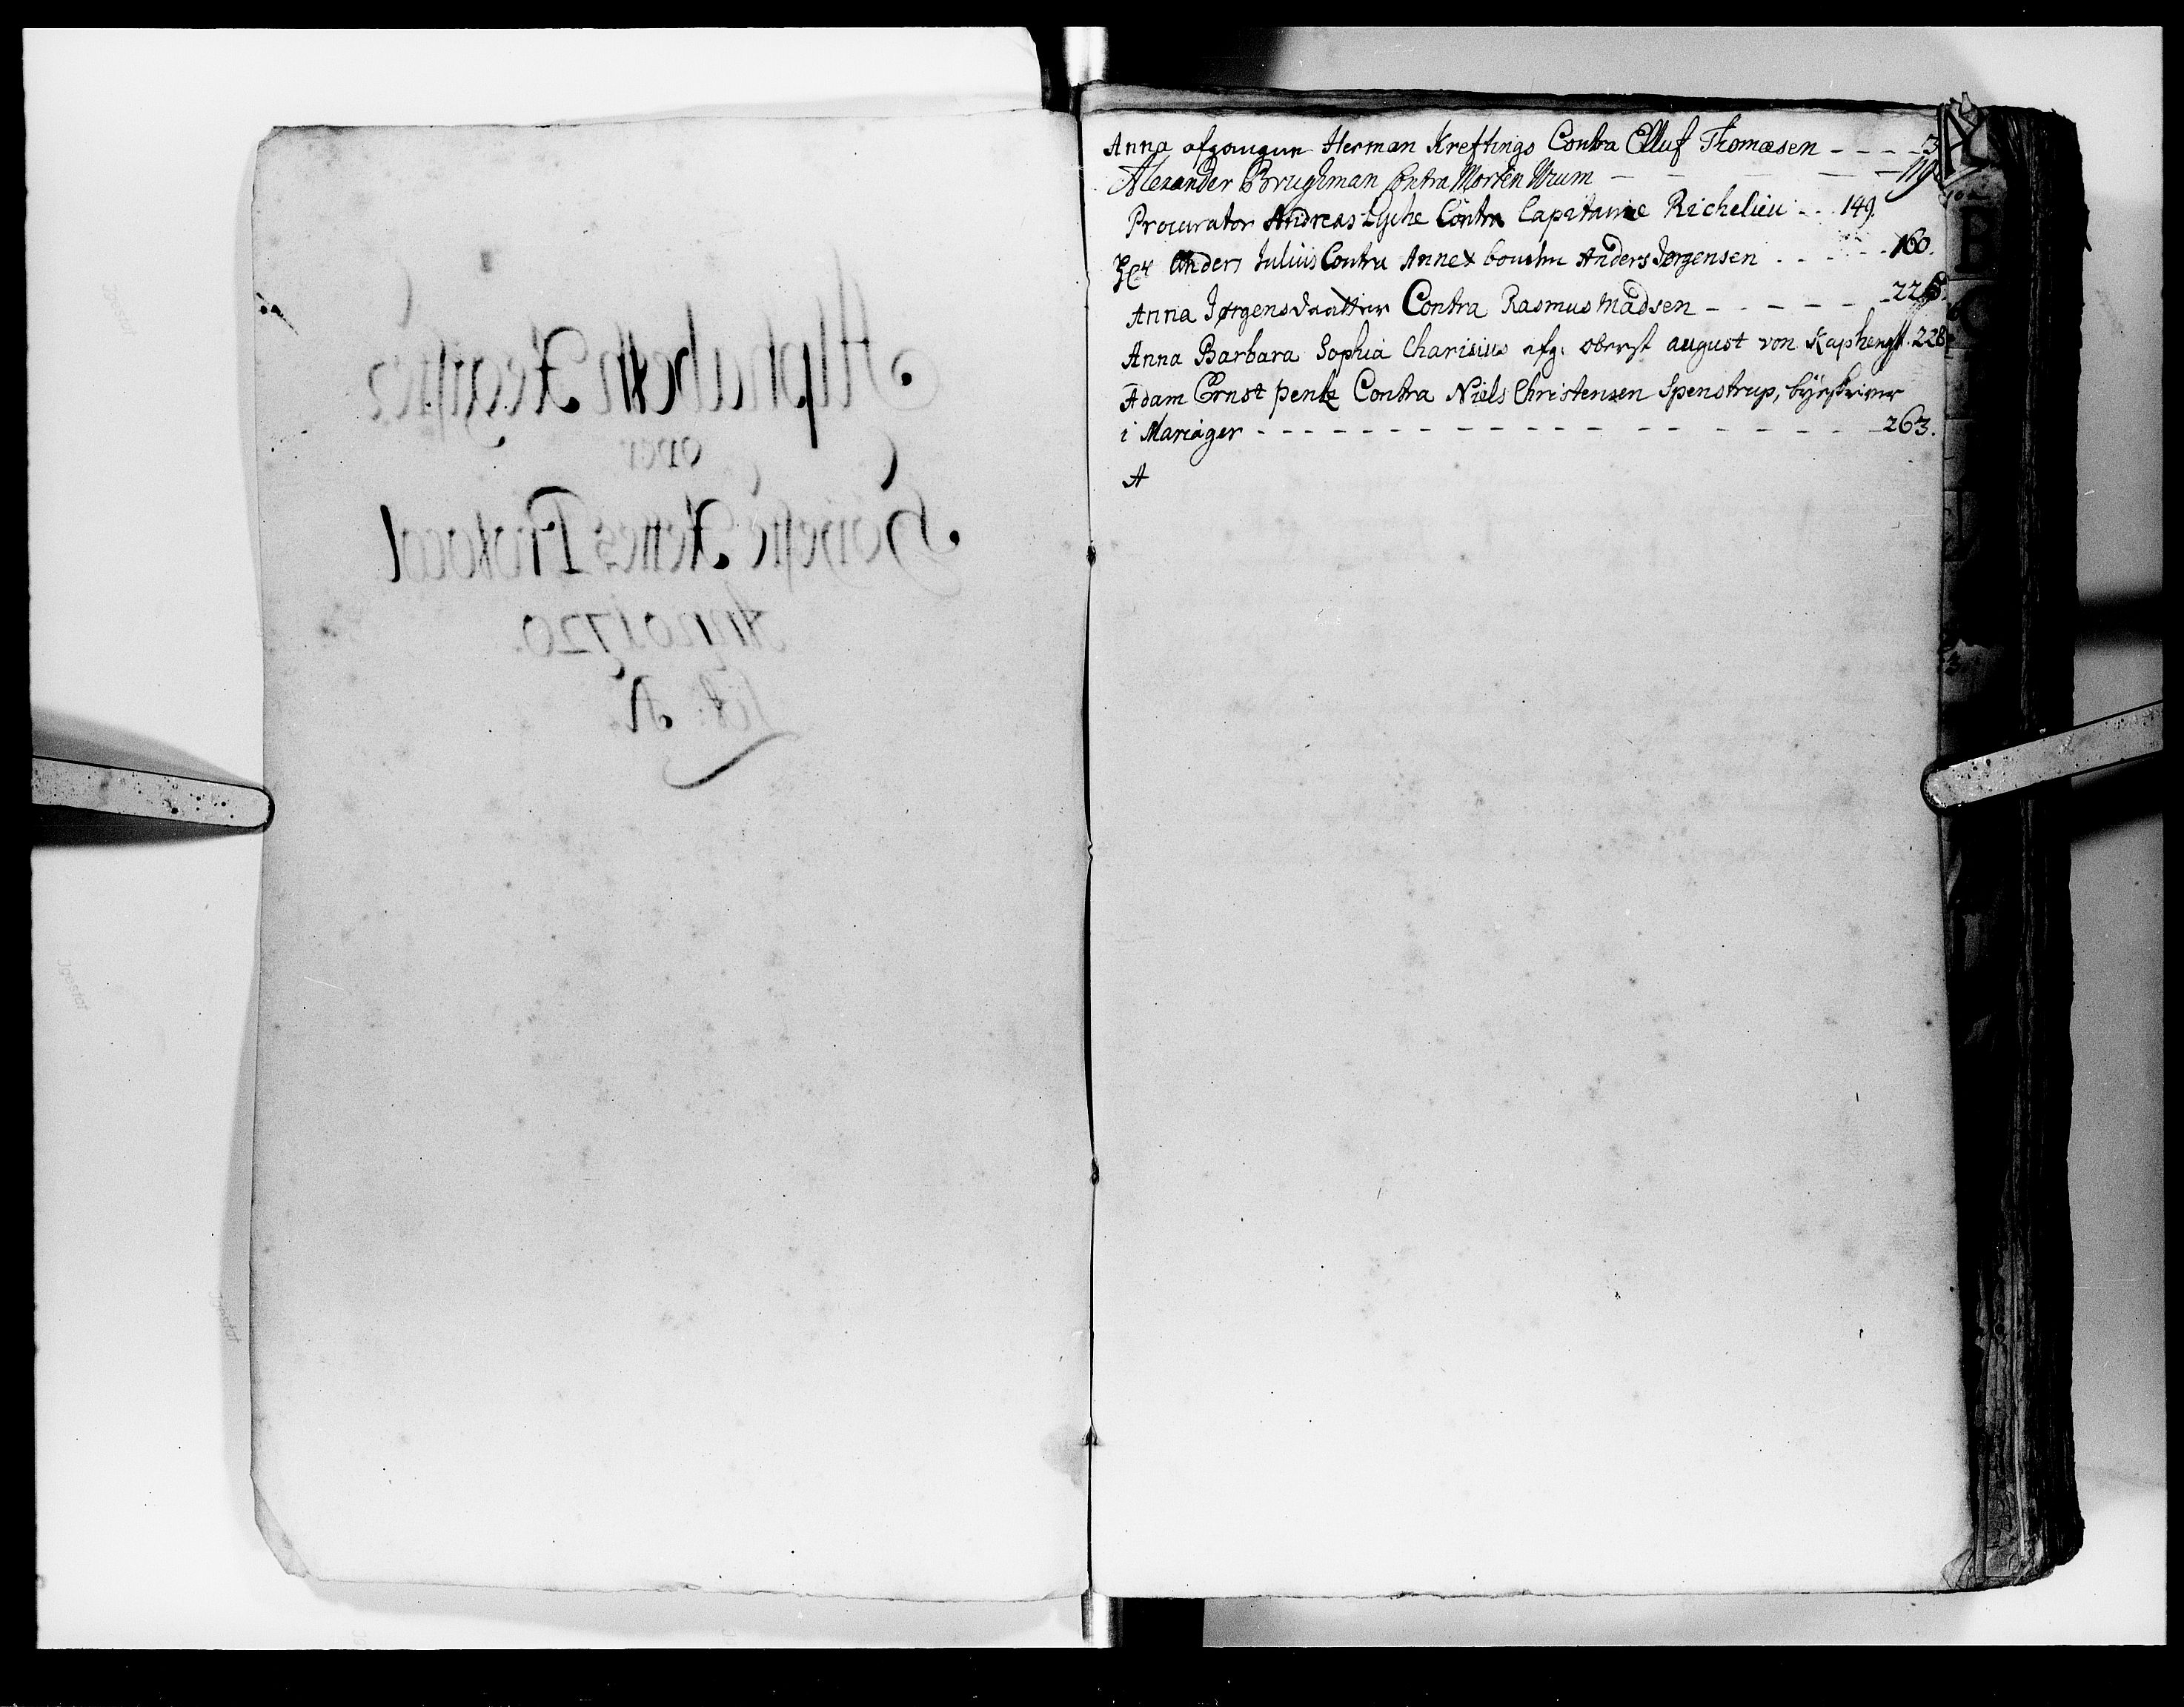 Alphabetisk Register
over
Höyeste Rettes Protocol
Anno 1720.
Lit: A.
Anna afgangne Herman Kreftings Contra Elluf Thomæsen - - - - 3
Alexander Brughman Contra Morten Wium - - - - 119
Procurator Andreas Lyche Contra Capitaine Richelieu - - 149.
Hr Anders Julius Contra Annex bonden Anders Jørgensen - - - - 160.
Anna Jørgensdaatter Contra Rasmus Madsen - - - - - 226.
Anna Barbara Sophia Charisius afg: oberst august von Kaphengst. 228
Adam Ernst pentz Contra Niels Christensen Spenstrup, byeskriver
i Mariager - - - - - - - - - - - - - - 263.
A
A
B
C